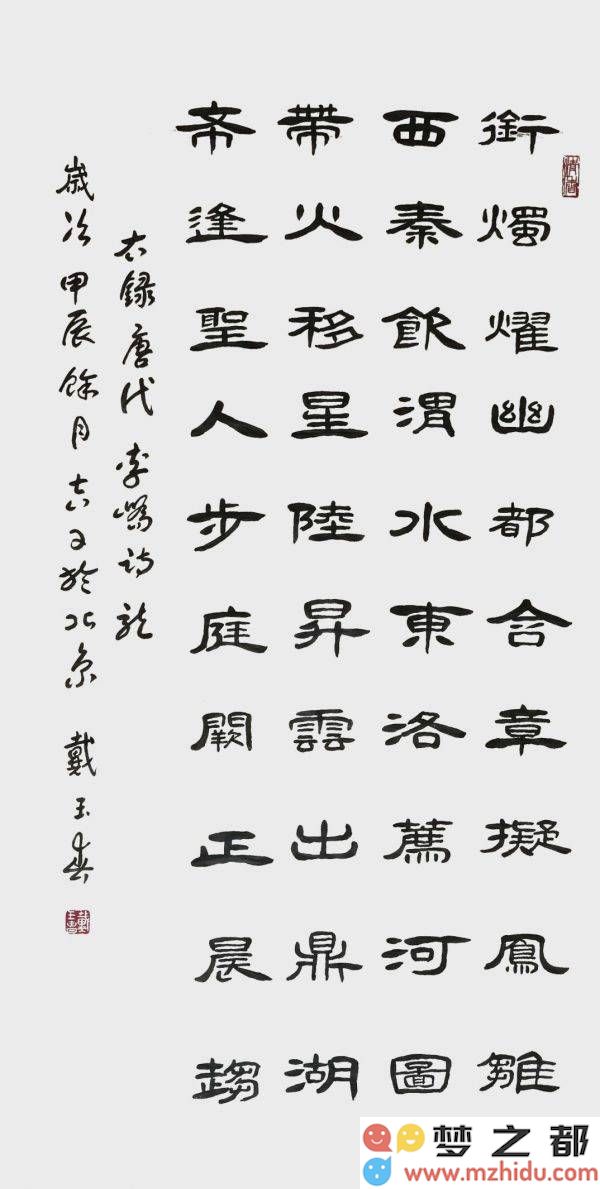 銜燭耀幽都含章擬鳳雛
西秦飲渭水東洛薦河圖
帶火移星陸昇雲出鼎湖
希逢聖人步庭闕正晨趨
右録唐代李嶠詩龍
歲次甲辰餘月吉日於北京 戴玉
梦之都
www.mzhidu.com